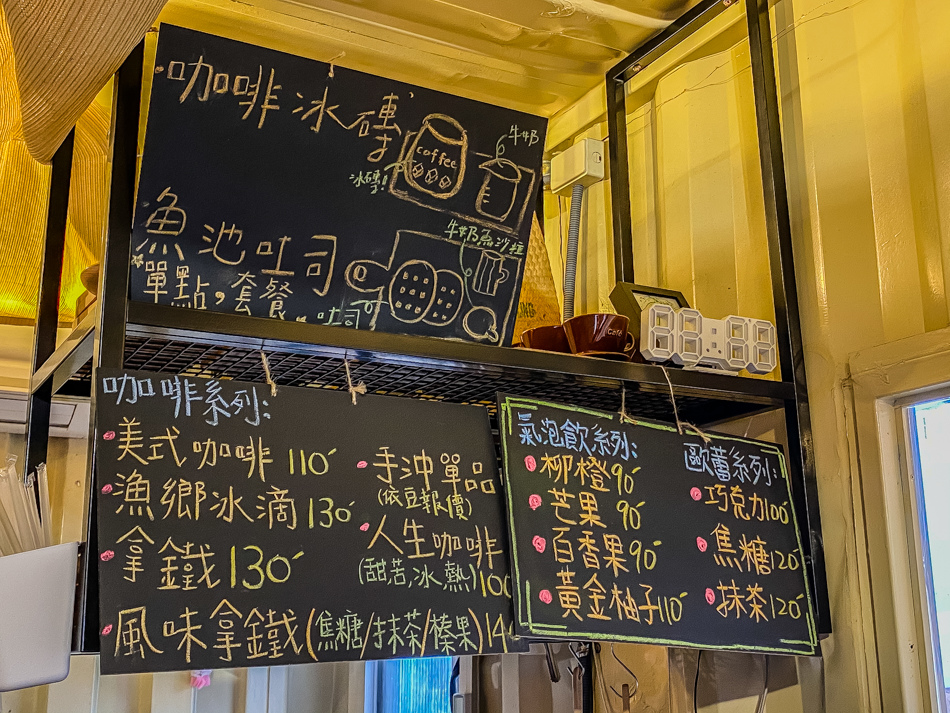 咖啡冰磚
coffee
牛奶
冰磚!
魚池吐司
牛奶魚沙拉
*單點,套餐
吐司
咖啡系列:
美式咖啡 110
漁鄉冰滴 130
拿鐵 130
風味拿鐵(焦糖/抹茶/榛果)
手沖單品
(依豆報價)
人生咖啡
(甜苦,冰熱)100
氣泡飲系列:
柳橙 90
芒果 90
百香果 90
黃金柚子 110
歐蕾系列:
巧克力 100
焦糖 120
抹茶 120